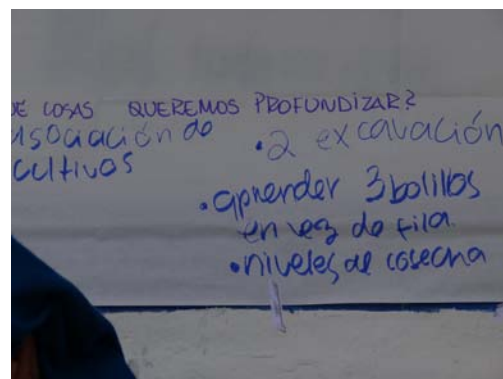 DE COSAS QUEREMOS PROFUNDIZAR?
asociación de
cultivos
• 2 excavación
• aprender 3bolillos
en vez de fila
• niveles de cosecha